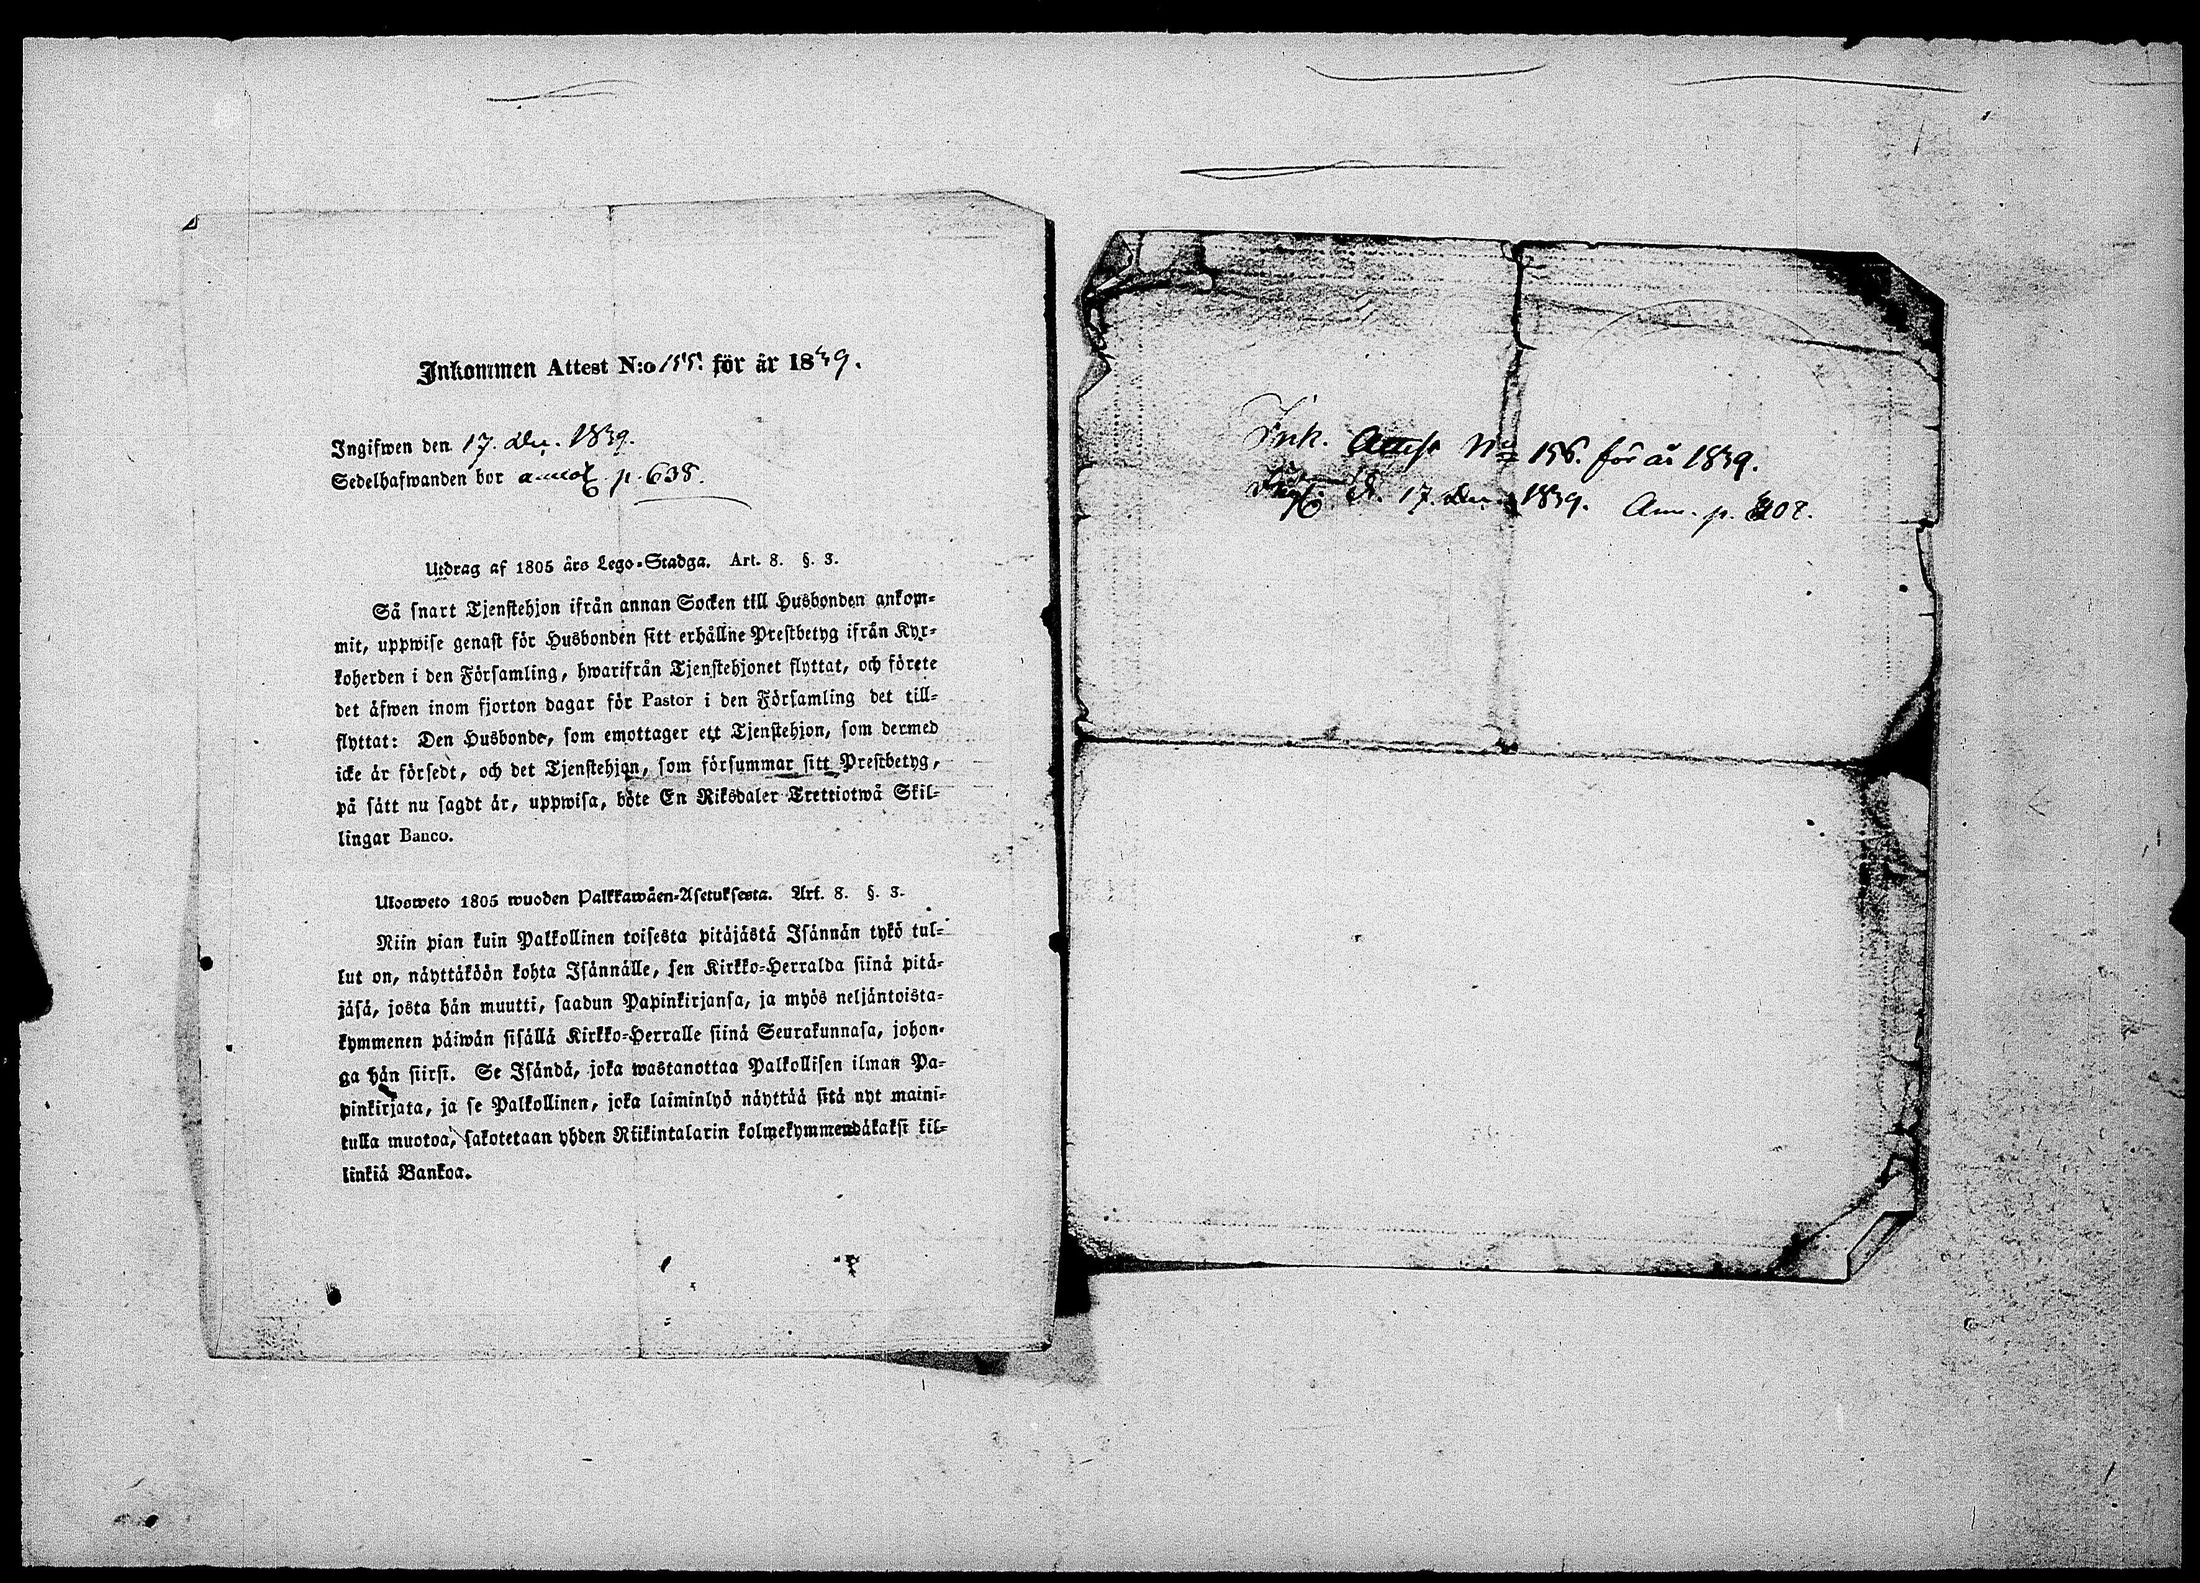 Inkommen Attest N:o 155. för år 1839.
Ingifwen den 17. Dec. 1839.
Sedelhafwanden bor annot. p. 638.
Utdrag af 1805 års Lego-Stadga. Art. 8. §. 3.
Så snart Tjenstehjon ifrån annan Socken till Husbonden ankom-
mit, uppwise genast för Husbonden sitt erhållne Prestbetyg ifrån Kyr-
koherden i den Församling, hwarifrån Tjenstehjonet flyttat, och förete
det äfwen inom fjorton dagar för Pastor i den Församling det till-
flyttat: Den Husbonde, som emottager ett Tjenstehjon, som dermed
icke är försedt, och det Tjenstehjon, som försummar sitt Prestbetyg,
på sätt nu sagdt är, uppwisa, böte En Riksdaler Trettiotwå Skil-
lingar Banco.
Ulosweto 1805 wuoden Palkkawäen-Asetuksesta. Art. 8. §. 3.
Niin pian kuin Palkollinen toisesta pitäjästä Isännän tykö tul-
lut on, näyttäköön kohta Isännälle, sen Kirkko-Herralda siinä pitä-
jäsä, josta hän muutti, saadun Papinkirjansa, ja myös neljäntoista-
kymmenen päiwän sisällä Kirkko-Herralle siinä Seurakunnasa, johon-
ga hän siirsi. Se Isändä, joka wastanottaa Palkollisen ilman Pa-
pinkirjata, ja se Palkollinen, joka laiminlyö näyttää sitä nyt maini-
tulla muotoa, sakotetaan yhden Riikintalarin kolmekymmendäkaksi kil-
linkiä Bankoa.
Ink. Attest No 156. för år 1839.
d. 17. Dec. 1839. Ann. p.